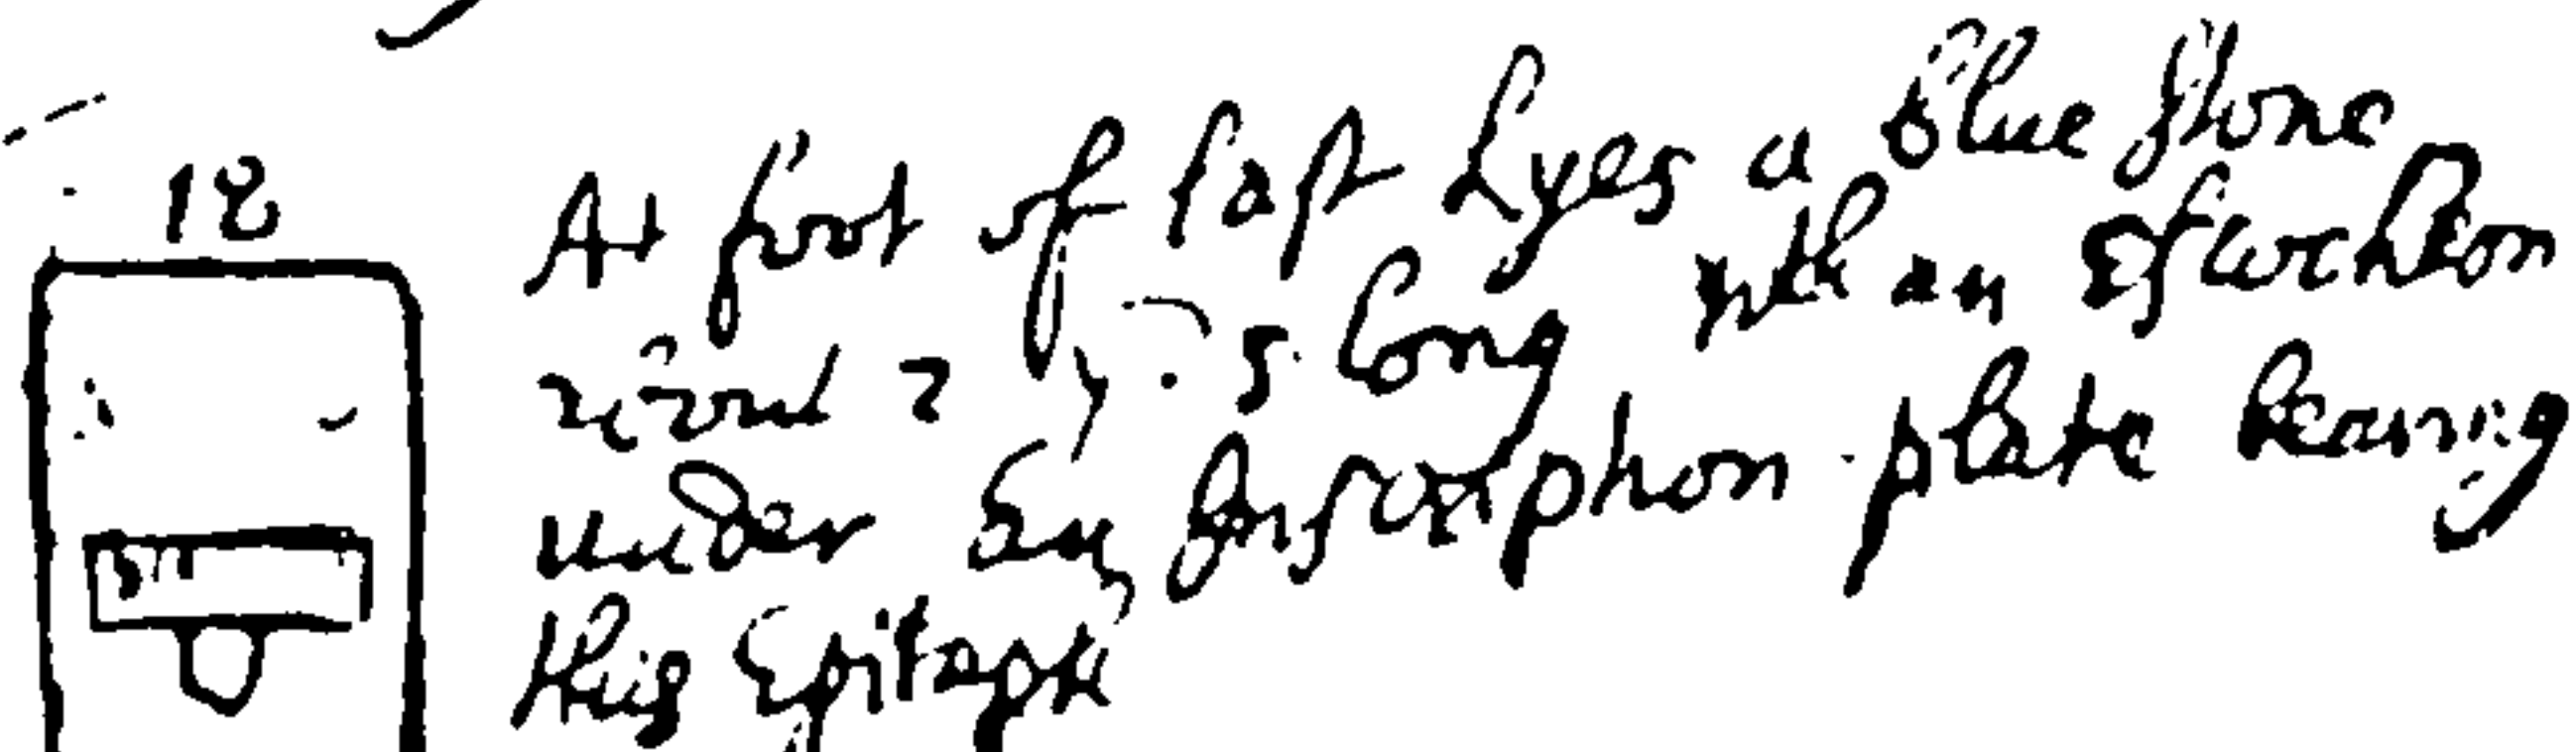 18
At foot of last Lyes a blue stone
2 y. 5 long wth an Escuchion
under an Inscription plate bearing
this Epitaph